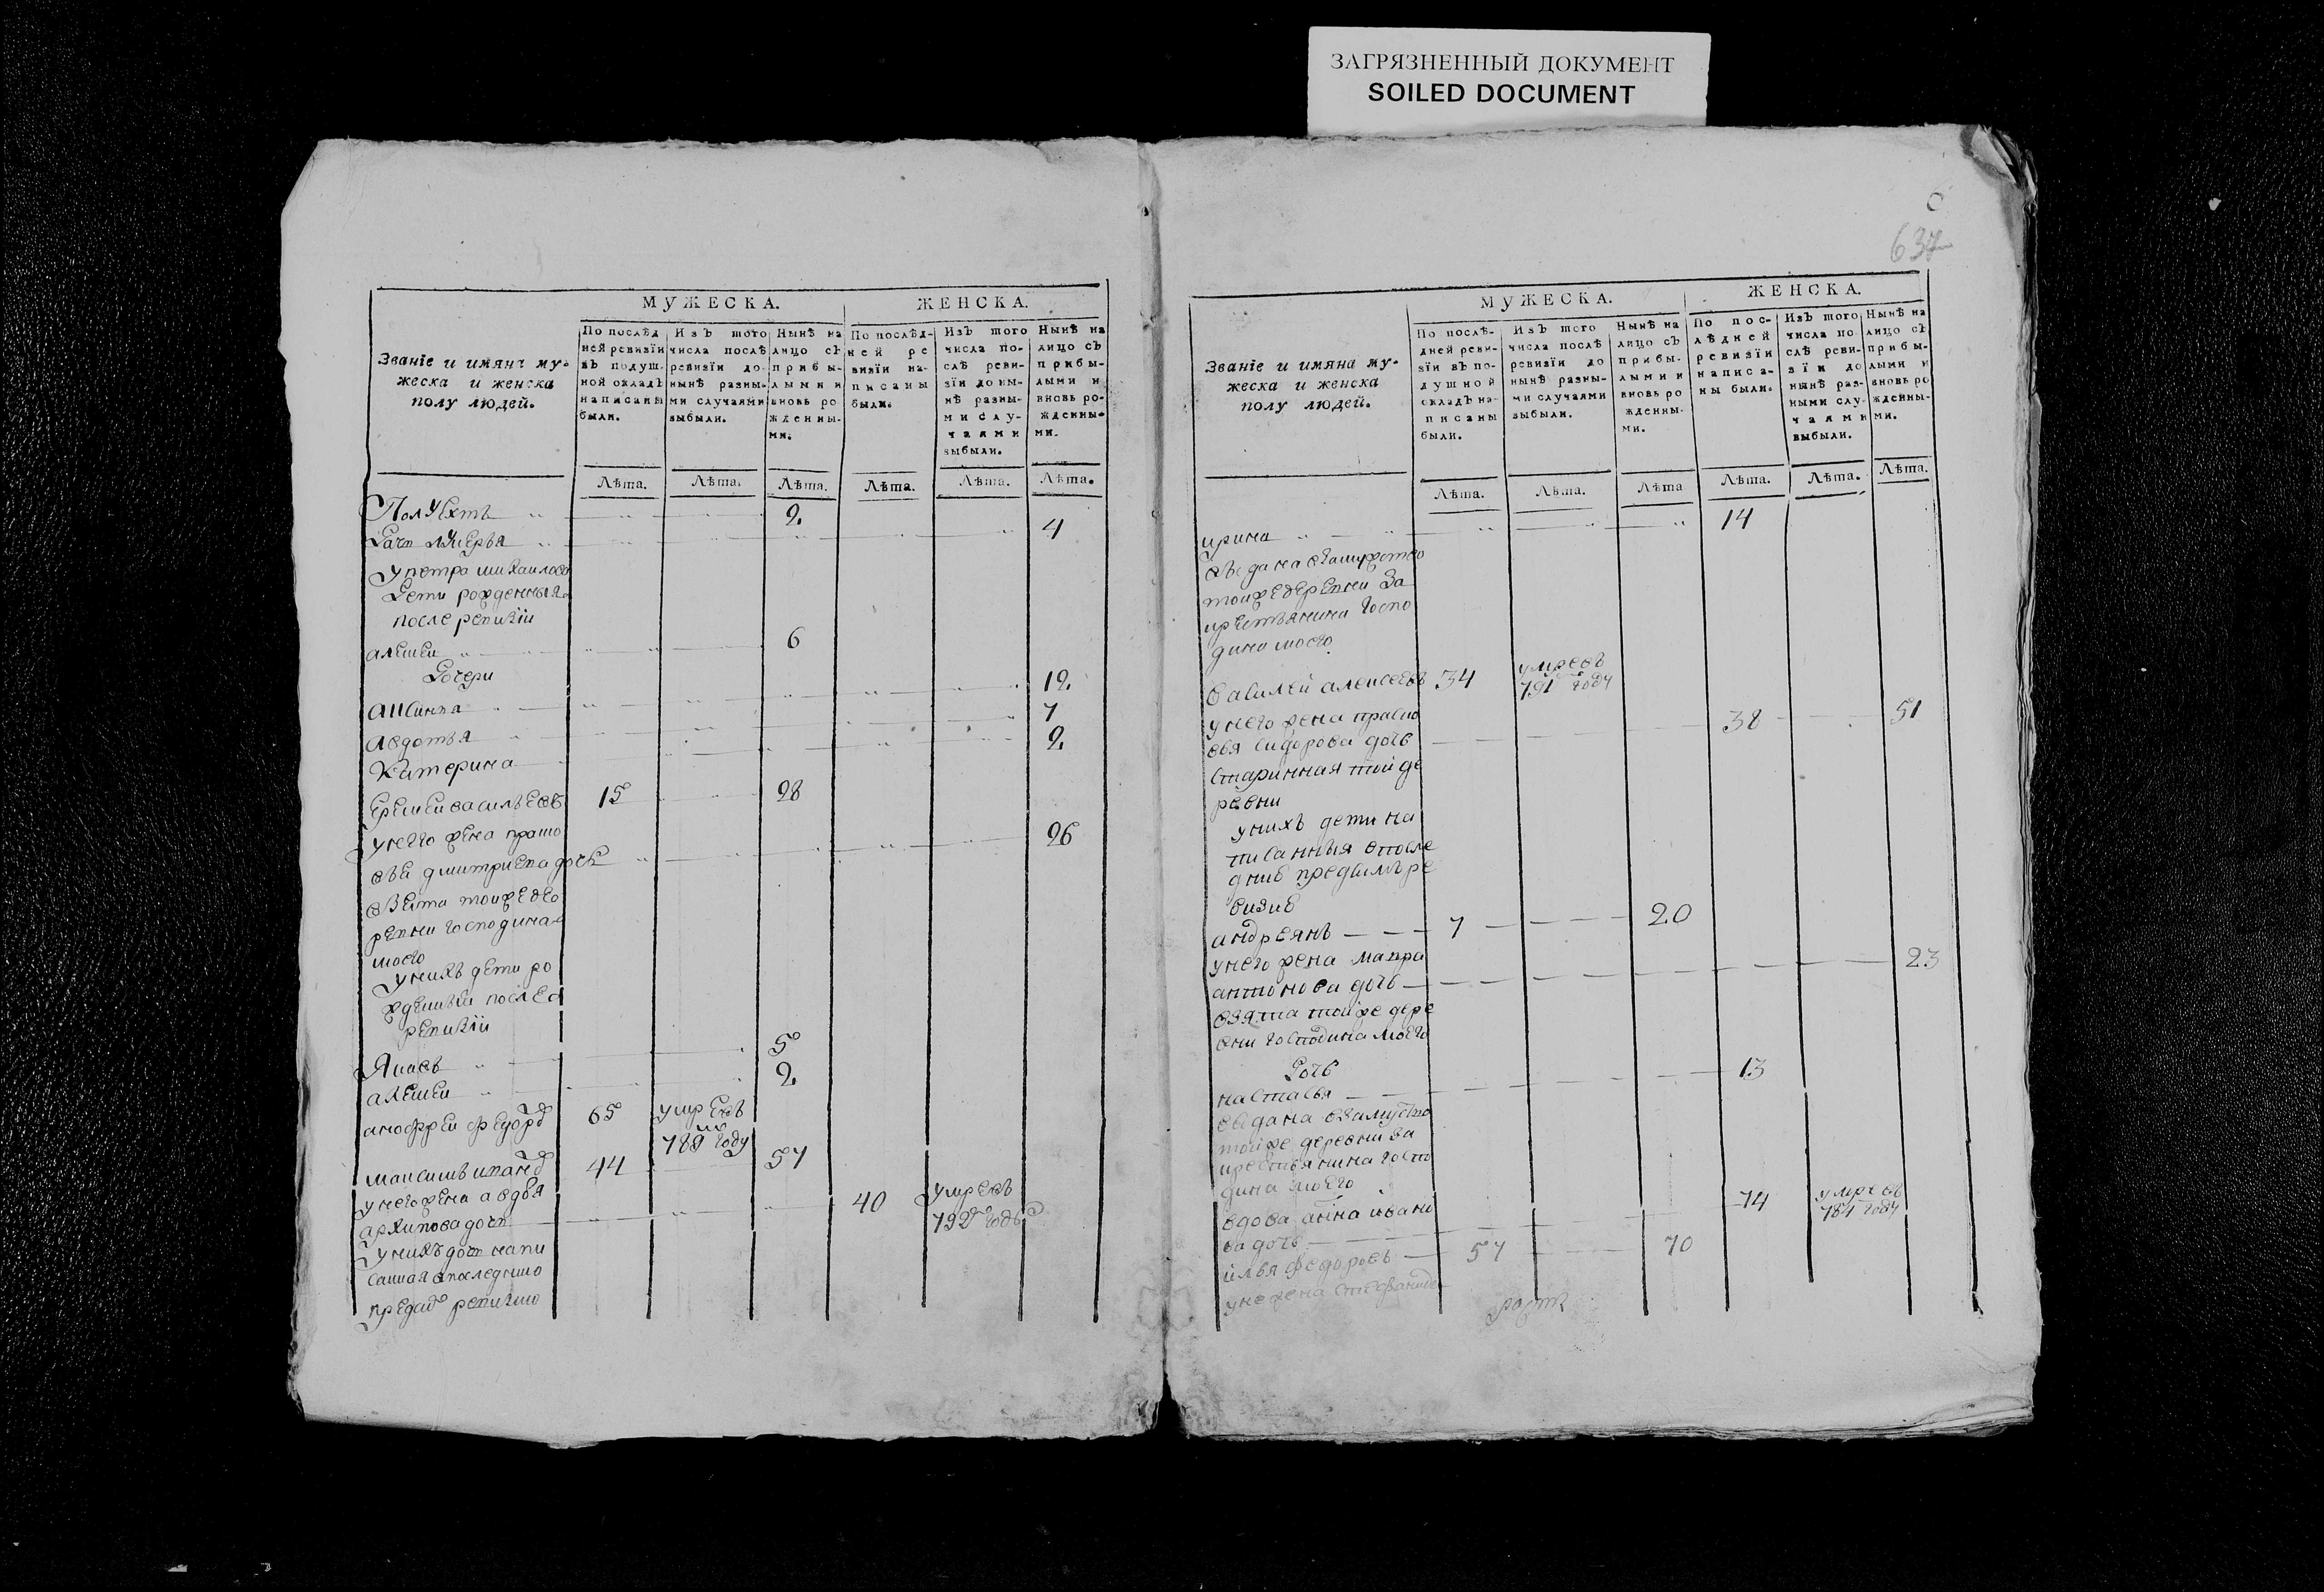 ЗАГРЯЗНЕННЫЙ ДОКУМЕНТ
SOILED DOCUMENT
637
МУЖЕСКА.
ЖЕНСКА.
Званіе и имянa му-
жеска и женска
полу людей.
По послѣд
ней ревизіи
въ подуш-
ной окладъ
написаны
были.
Изъ того
числа послѣ
ревизіи до
нынѣ разны-
ми случаями
выбыли.
Нынѣ на
лицо съ
прибы-
лыми и
вновь ро
жденны-
ми.
По послѣд-
ней ре
визіи на-
писаны
были.
Изъ того
числа по-
слѣ реви-
зіи до ны-
нѣ разны-
ми слу-
чаями
выбыли.
Нынѣ на
лицо съ
прибы-
лыми и
вновь ро-
жденны-
ми.
Лѣта. Лѣта. Лѣта. Лѣта. Лѣта. Лѣта.
2
4
у петра михаилова
дети рожденныя
после ревизіи
алексеи 6
дочери
аксинья 12
авдотья 7
катерина 2
еремеи васильевъ 15 28
у него жена праско 26
вья дмитриева дочь
взята тоижеде
ревни господина
моего
у нихъ дети ро
жденныи после
ревизіи
5
алексеи 2
анофреи федор 65 умревъ
788 году
максимъ иванов 44 57
у него жена авдотья 40 умревъ
архипова дочь 792 годъ
у нихъ дочь напи
санная впоследнюю
пред ревизию
МУЖЕСКА.
ЖЕНСКА.
Званіе и имяна му-
жеска и женска
полу людей.
По послѣ-
дней реви-
зіи въ по-
душной
окладъ на-
писаны
были.
Изъ того
числа послѣ
ревизіи до
нынѣ разны-
ми случаями
выбыли.
Нынѣ на
лицо съ
прибы-
лыми и
вновь ро
жденны-
ми.
По пос-
лѣдней
ревизіи
написа-
ны были.
Изъ того
числа по
слѣ реви-
зіи до
нынѣ раз-
ными слу-
чаями
выбыли.
Нынѣ на
лицо съ
прибы-
лыми и
вновь ро
жденны-
ми.
Лѣта. Лѣта. Лѣта Лѣта. Лѣта. Лѣта.
ирина 14
выдана взамужство
тоижедеревни за
крестьянина госпо
дина моего
василей алексеевъ 34 умревъ
791 году
у него жена праско 38 51
вья сидорова дочь
старинная той де
ревни
у нихъ дети на
писанныя впосле
днию пред ре
визию
андреянъ 7 20
у него жена мавра 23
антонова дочь
взята тойже дере
вни господина моего
дочь
настасья 13
выдана взамуство
тойже деревни за
крестьянина госпо
дина моего
вдова анна ивано 74 умревъ
ва дочь 784 году
илья федоровъ 57 70